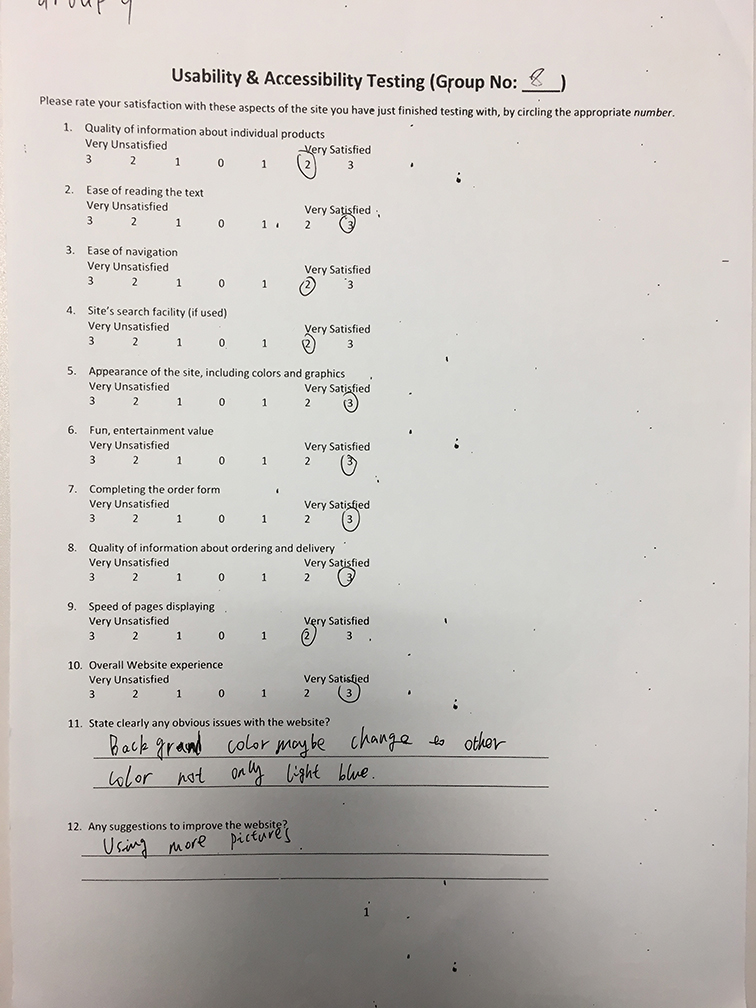 Group 9
Usability & Accessibility Testing (Group No: 8)
Please rate your satisfaction with these aspects of the site you have just finished testing with, by circling the appropriate number.
1. Quality of information about individual products
Very Unsatisfied Very Satisfied
3 2 1 0 1 2 3
2. Ease of reading the text
Very Unsatisfied Very Satisfied
3 2 1 0 1 2 3
3. Ease of navigation
Very Unsatisfied Very Satisfied
3 2 1 0 1 2 3
4. Site's search facility (if used)
Very Unsatisfied Very Satisfied
3 2 1 0 1 2 3
5. Appearance of the site, including colors and graphics
Very Unsatisfied Very Satisfied
3 2 1 0 1 2 3
6. Fun, entertainment value
Very Unsatisfied Very Satisfied
3 2 1 0 1 2 3
7. Completing the order form
Very Unsatisfied Very Satisfied
3 2 1 0 1 2 3
8. Quality of information about ordering and delivery
Very Unsatisfied Very Satisfied
3 2 1 0 1 2 3
9. Speed of pages displaying
Very Unsatisfied Very Satisfied
3 2 1 0 1 2 3
10. Overall Website experience
Very Unsatisfied Very Satisfied
3 2 1 0 1 2 3
11. State clearly any obvious issues with the website?
Back grand color maybe change to other
color not only light blue.
12. Any suggestions to improve the website?
Using more pictures
1